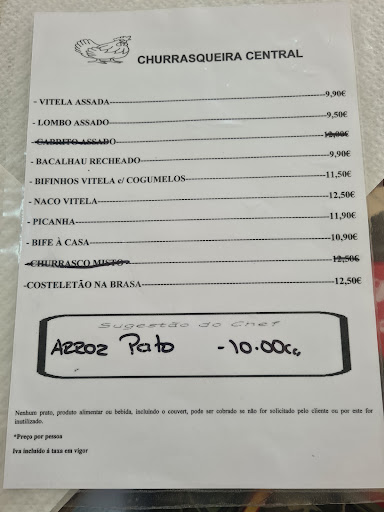 CHURRASQUEIRA CENTRAL
- VITELA ASSADA-----9,90€
- LOMBO ASSADO-----9,50€
- CABRITO ASSADO-----12,00€
- BACALHAU RECHEADO-----9,90€
- BIFINHOS VITELA c/ COGUMELOS-----11,50€
- NACO VITELA-----12,50€
- PICANHA-----11,90€
- BIFE À CASA-----10,90€
-CHURRASCO MISTO-----12,50€
-COSTELETÃO NA BRASA-----12,50€
Sugestão do Chef
ARROZ Pato -10.00
Nenhum prato, produto alimentar ou bebida, incluindo o couvert, pode ser cobrado se não for solicitado pelo cliente ou por este for
inutilizado.
*Preço por pessoa
Iva incluído á taxa em vigor